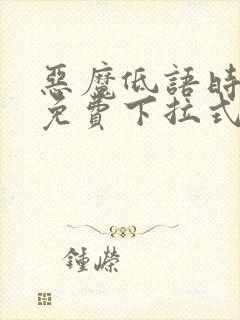 惡魔低語時
免費下拉式
鍾嶸